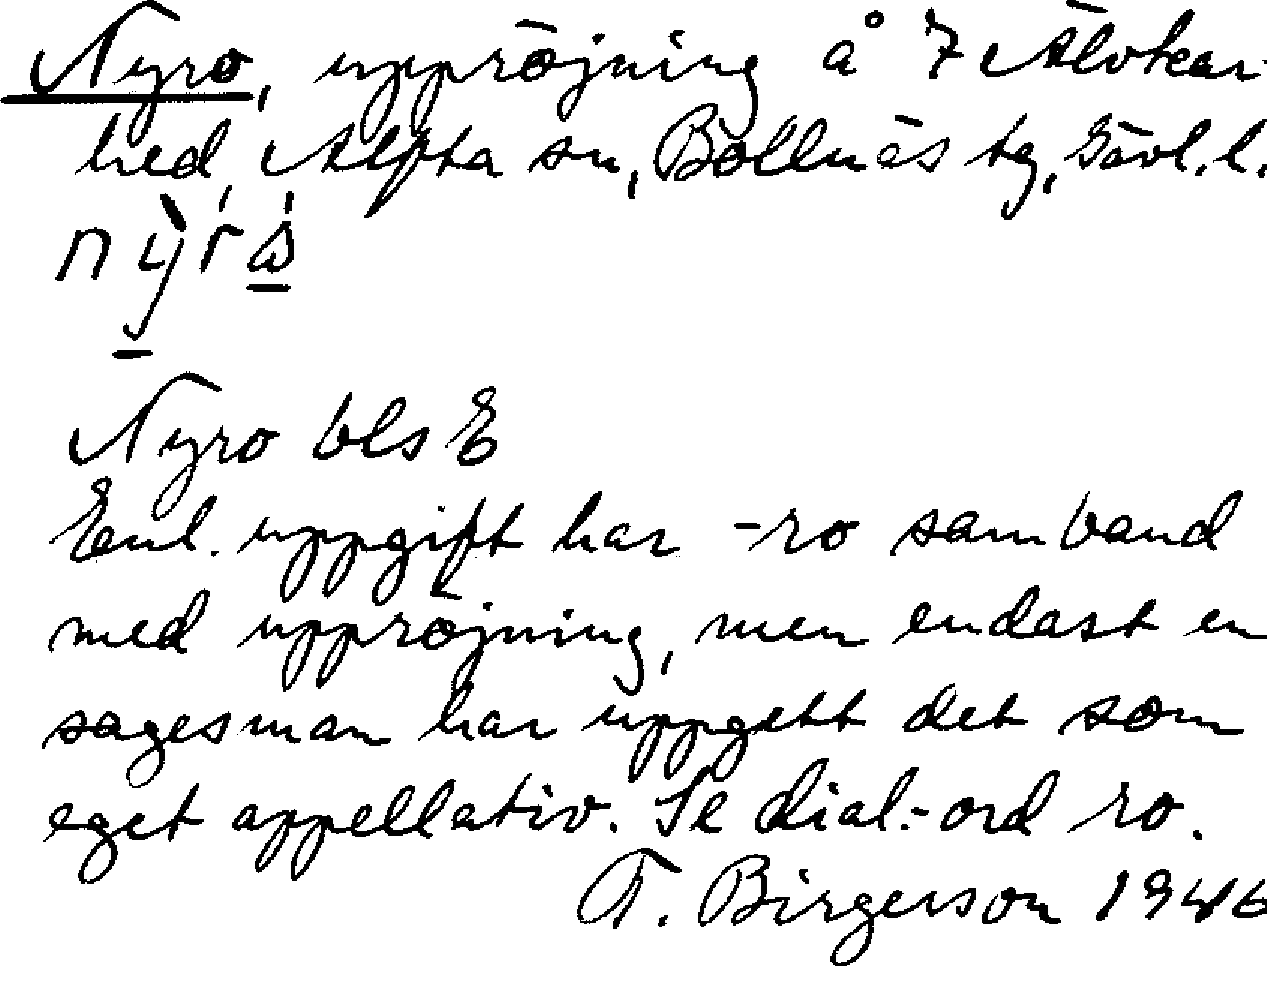 Nyro, uppröjning å 7 Älvkar-
hed, Alfta sn, Bollnäs tg, Gävl. l.
Nyro bls E
Enl. uppgift har -ro samband
med uppröjning, men endast en
sagesman har uppgett det som
eget appellativ. Se dial.-ord ro.
F. Birgerson 1946